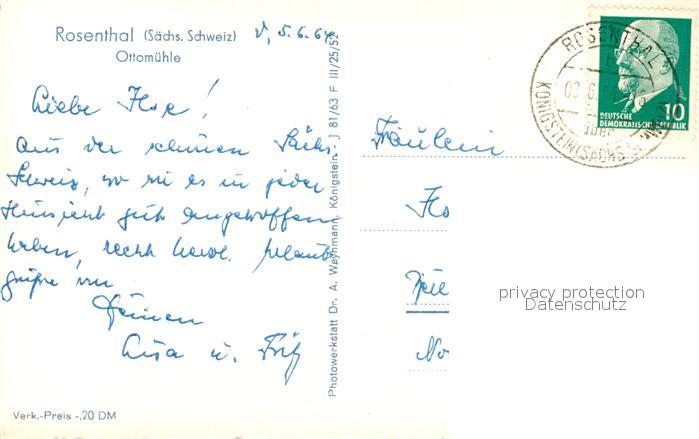 Rosenthal (Sächs. Schweiz)
Ottomühle
d. 5.6.64
Liebe Ilse!
Aus der schönen Sächs.
Schweiz, wo wir es in jeder
Hinsicht gut angetroffen
haben, recht herzl. Urlaubs-
grüße von
Deinen
Lisa u. Fritz
Verk.-Preis -,20 DM
Photowerkstatt Dr. A. Weyhmann, Königstein, J 81/63 F III/25/52
Fräulein
No
ROSENTHAL
b
über
KÖNIGSTEIN (SÄCHS SCHW)
DEUTSCHE
DEMOKRATISCHE REPUBLIK
10
privacy protection
Datenschutz